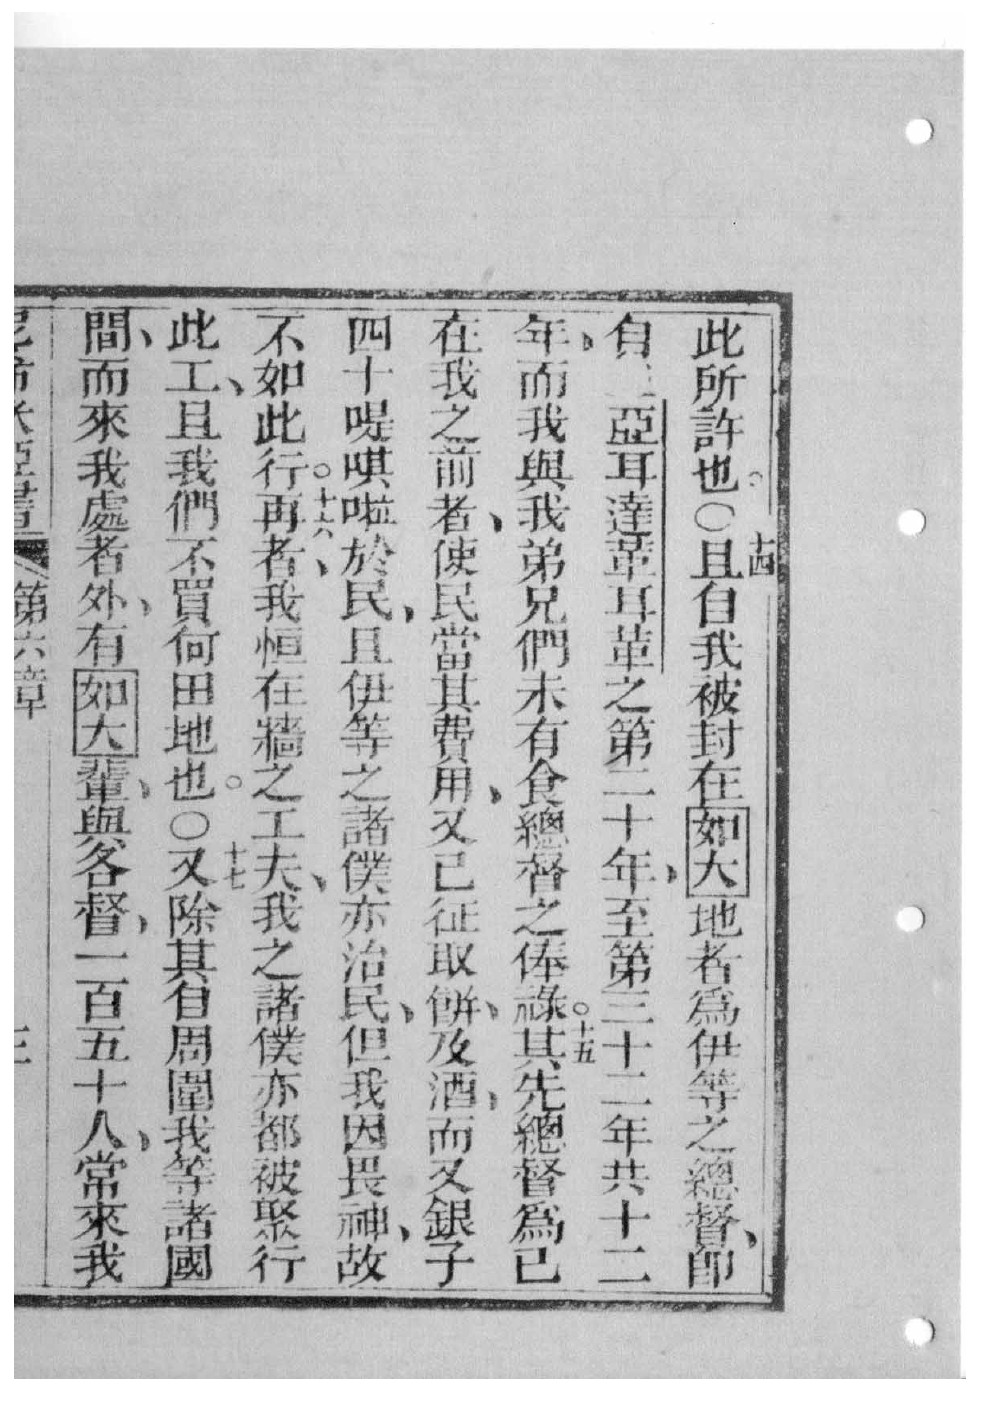 此所許也。○十四且自我被封在如大地者為伊等之總督、即
自王亞耳達革耳革之第二十年、至第三十二年共十二
年、而我與我弟兄們未有食總督之俸祿。十五其先總督為已
在我之前者、使民當其費用、又已征取餅、及酒、而又銀子
四十㖷唭啦於民、且伊等之諸僕亦治民、但我因畏神、故
不如此行。十六再者、我恒在牆之工夫、我之諸僕亦都被聚行
此工、且我們不買何田地也。○十七又除其自周圍我等諸國
間、而來我處者外、有如大輩、與各督、一百五十人、常來我
第六章 三